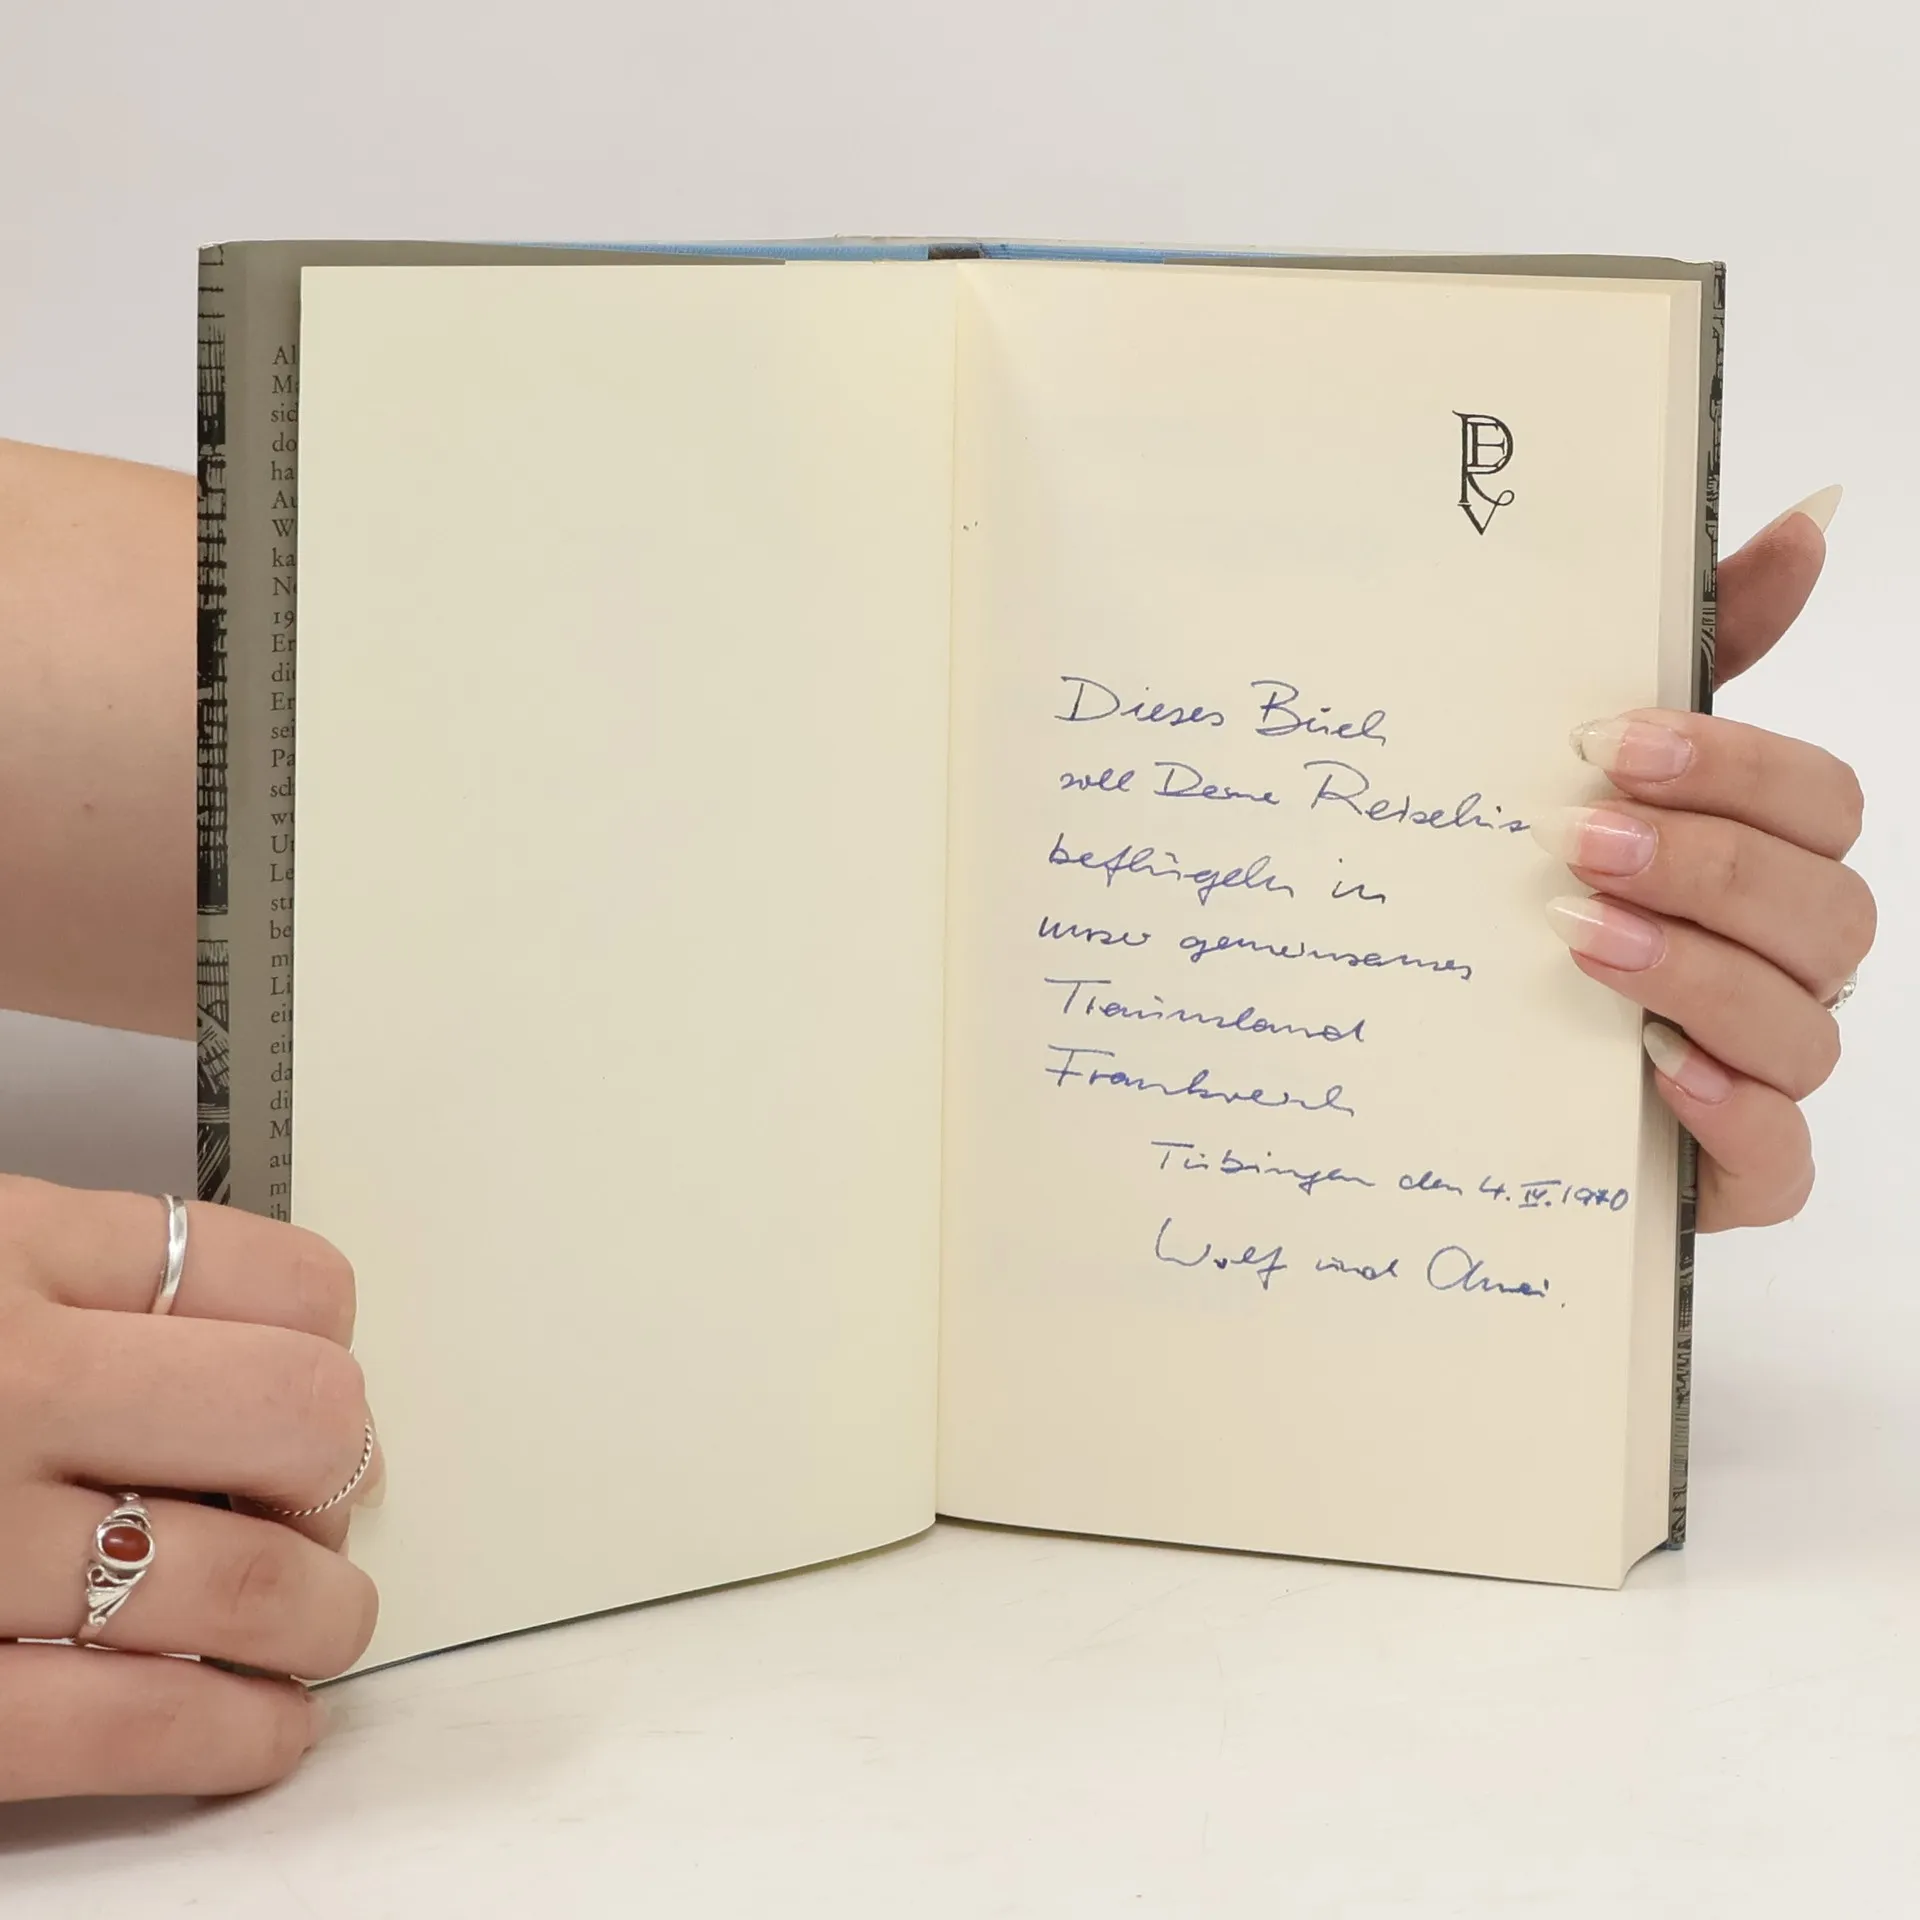 Al
Ma
sic
do
ha
Au
W
ka
No
19
Er
die
Er
sei
Pa
sch
wu
Un
Le
str
be
mi
Li
ein
ein
da
die
M
au
mi
ih
PERV
Dieses Buch
soll Deine Reiselus
beflügeln in
unser gemeinsames
Traumland
Frankreich
Tübingen den 4. IV. 1970
Wolf und